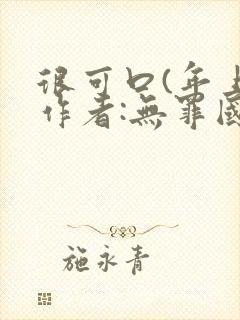 很可口(年上
作者:無罪國
施永青